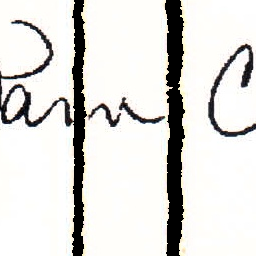 Pam C